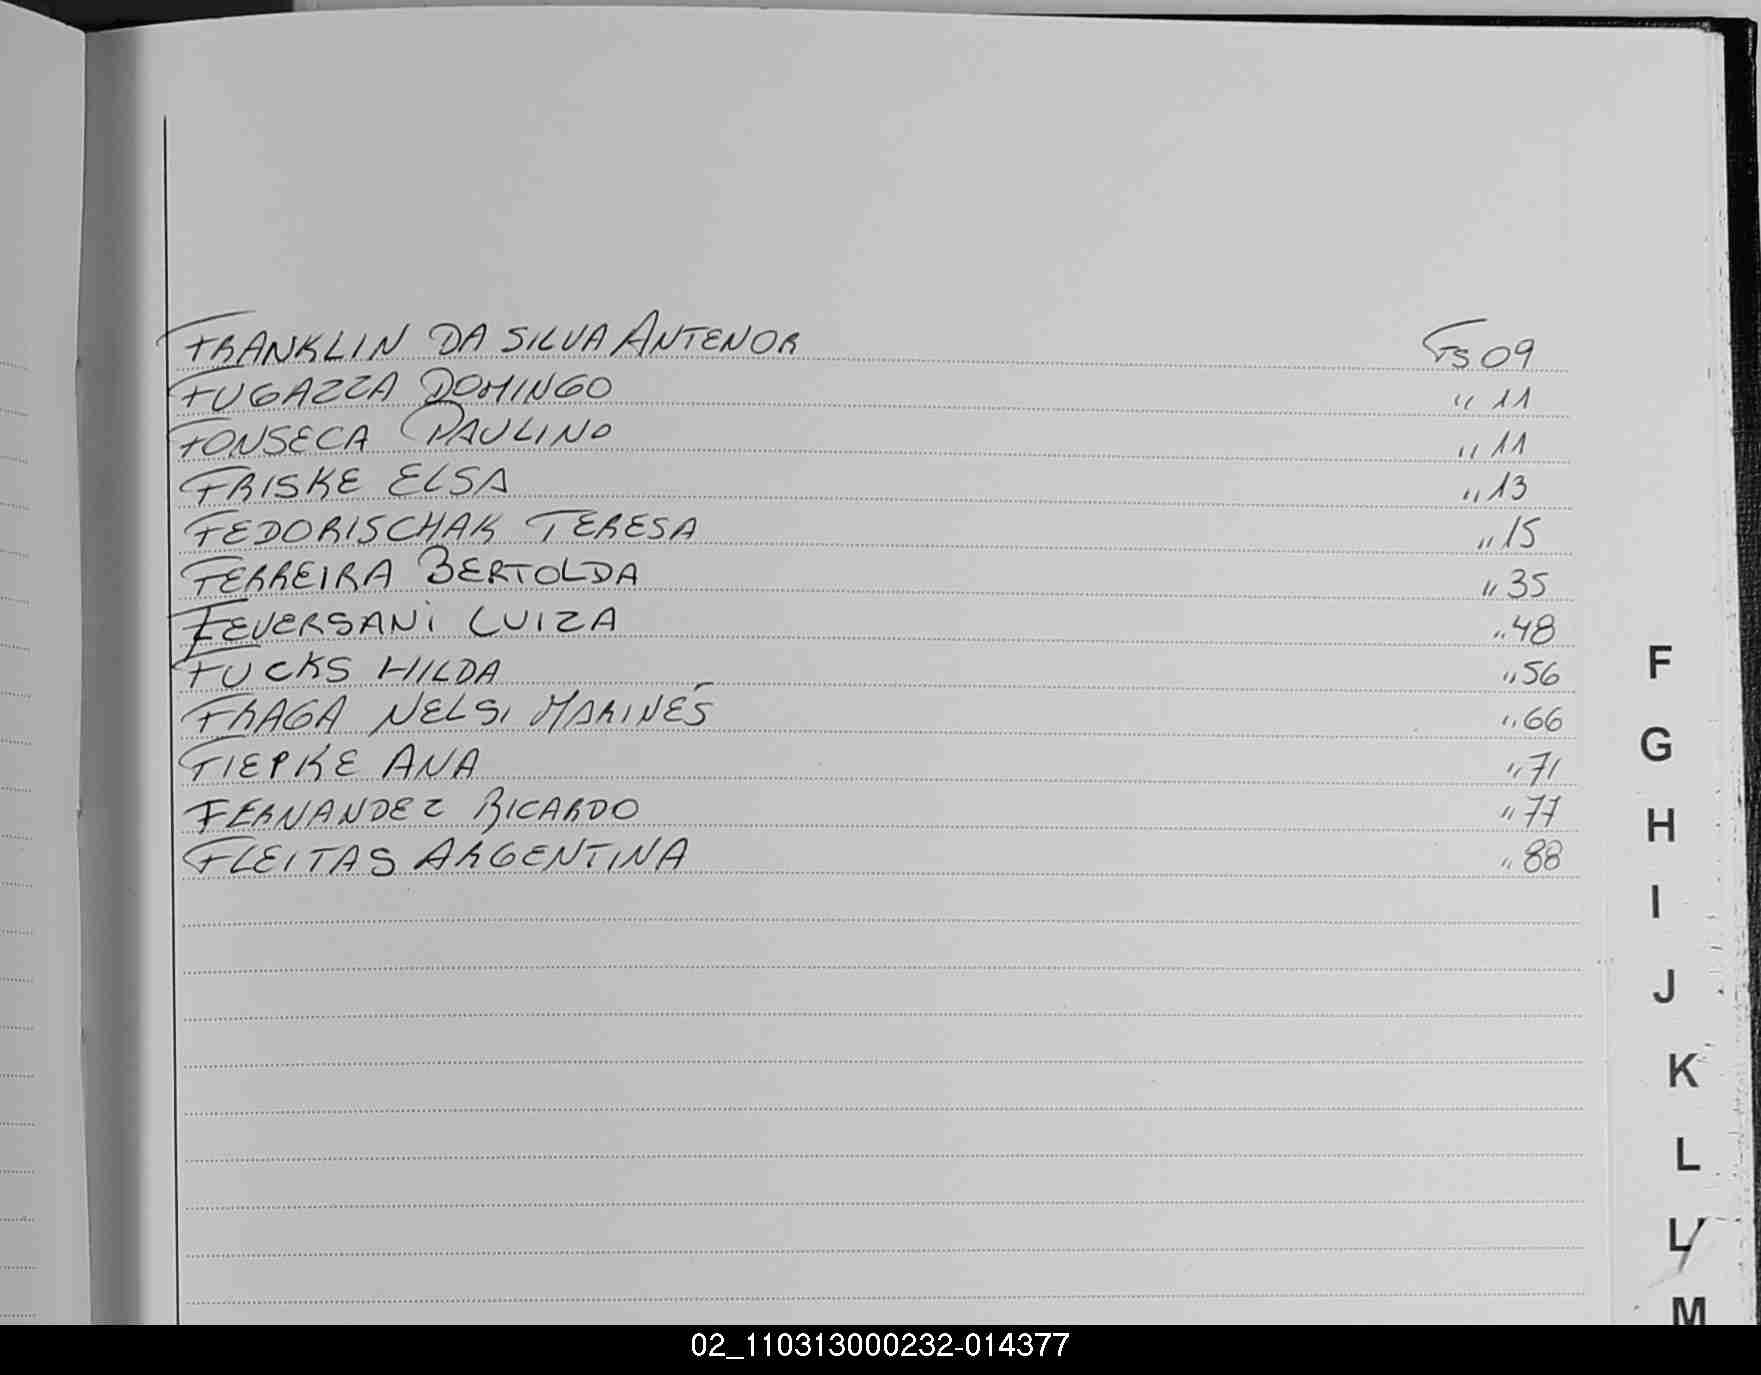 FRANKLIN DA SILVA ANTENOR Fs 09
FUGAZZA DOMINGO " 11
FONSECA PAULINO " 11
FRISKE ELSA " 13
FEDORISCHAK TERESA " 15
FERREIRA BERTOLDA " 35
FEVERSANi LUIZA " 48
FUCKS HILDA " 56
FRAGA NELSI MARINÉS " 66
FIEPKE ANA " 71
FERNANDEZ RICARDO " 77
FLEITAS ARGENTINA " 88
F
G
H
I
J
K
L
L
M
02_110313000232-014377